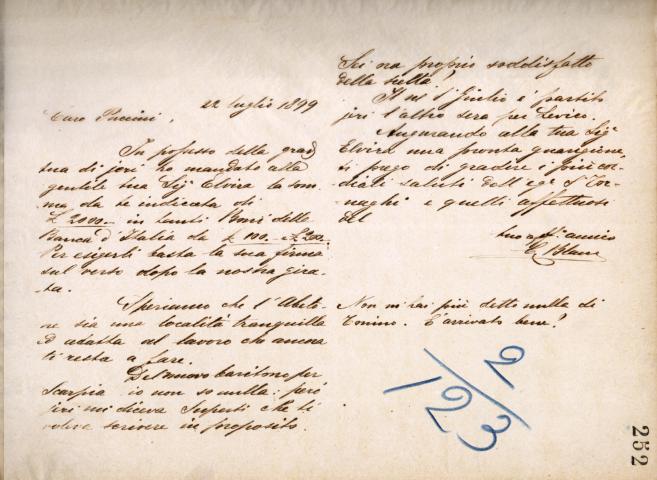 22 luglio 1899
Caro Puccini,
In possesso della grad
tua di jeri ho mandato alla
gentile tua Sigª Elvira la som-
ma da te indicata di
£ 2000.- in tanti Buoni della
Banca d'Italia da £ 100.- e £ 200.
Per esigerli basta la sua firma
sul verso dopo la nostra gira-
ta.
Speriamo che l'Abeto-
ne sia una località tranquilla
ed adatta al lavoro che ancora
ti resta a fare.
Del nuovo baritono per
Scarpia io non so nulla: però
jeri mi diceva che ti
voleva scrivere in proposito.
Sei ora proprio soddisfatto
della scelta?
Il Giulio è partito
jeri l'altro sera per Levico.
Augurando alla tua Sigª
Elvira una pronta guarigione,
ti prego di gradire i più cor-
diali saluti dell'egº S. Tor-
naghi e quelli affettuosi
del
tuo affº amico
C. Blanc
Non mi hai più detto nulla di
Tonino. È arrivato bene?
2/123
252